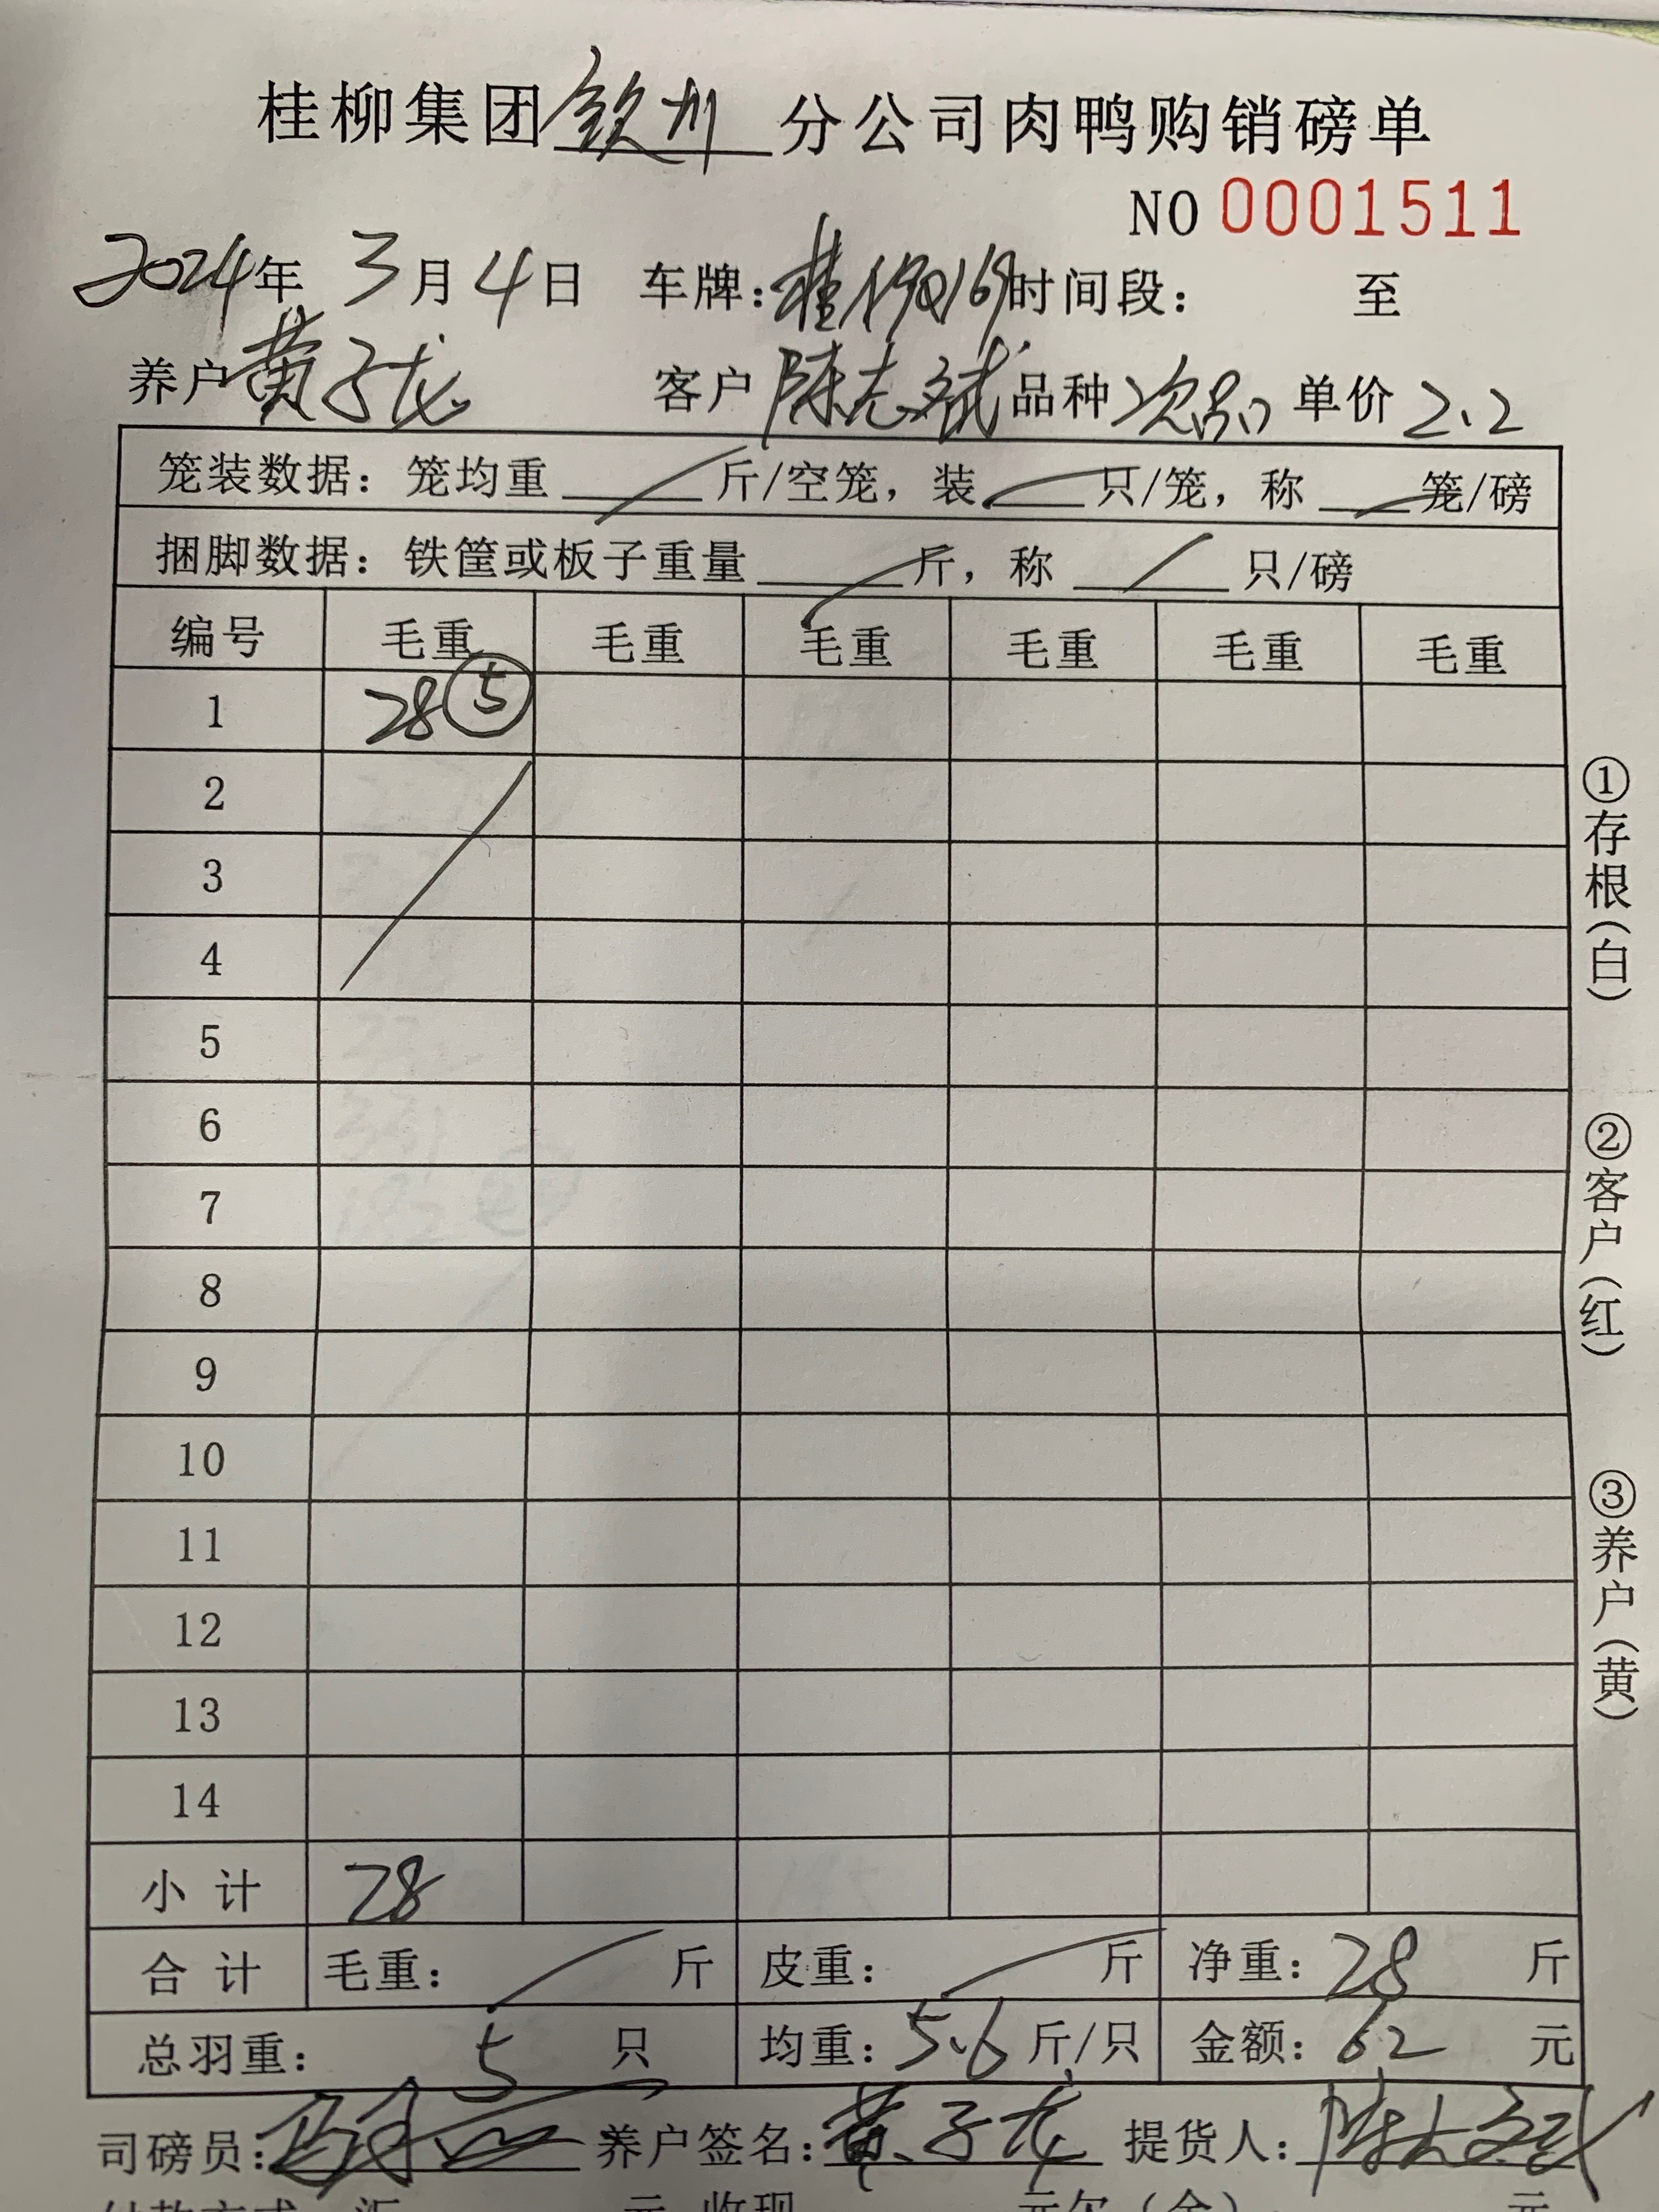 桂柳集团钦州分公司肉鸭购销磅单
NO 0001511
2024年 3月4日 车牌: 时间段: 至
养户黄子龙 客户陈志斌 品种次品 单价2.2
笼装数据: 笼均重 斤/空笼, 装 只/笼, 称 笼/磅
捆脚数据: 铁筐或板子重量 斤, 称 只/磅
编号 毛重 毛重 毛重 毛重 毛重 毛重
1 28 ⑤
2
3
4
5
6
7
8
9
10
11
12
13
14
小计 28
合计 毛重: 斤 皮重: 斤 净重: 28 斤
总羽重: 5 只 均重: 5.6 斤/只 金额: 62 元
司磅员: 养户签名: 黄子龙 提货人: 陈志斌
①存根(白)
②客户(红)
③养户(黄)